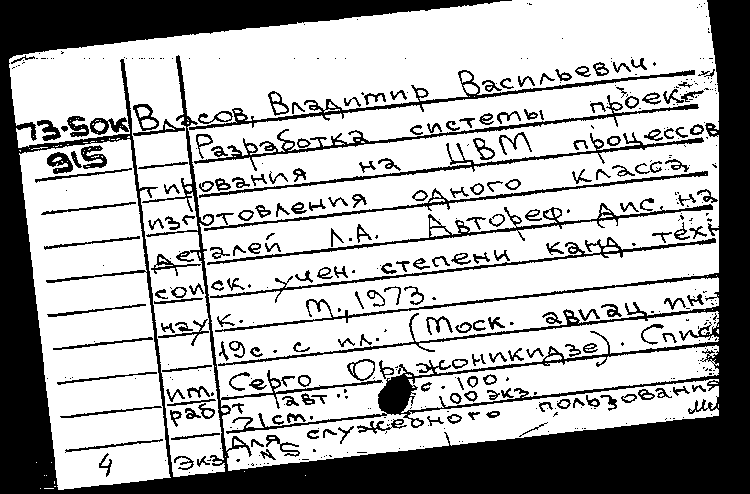 73-50к
915
Власов, Владимир Васильевич.
Разработка системы проек-
тирования на ЦВМ процессов
изготовления одного класса
деталей Л.А. Автореф. дис. на
соиск. учен. степени канд. техн
наук. М., 1973.
19с. с ил. (Моск. авиац. ин-
им. Серго Орджоникидзе). Списо
работ авт.: с. 100.
21см. 100 экз.
Для служебного пользования
Экз. № 5.
4